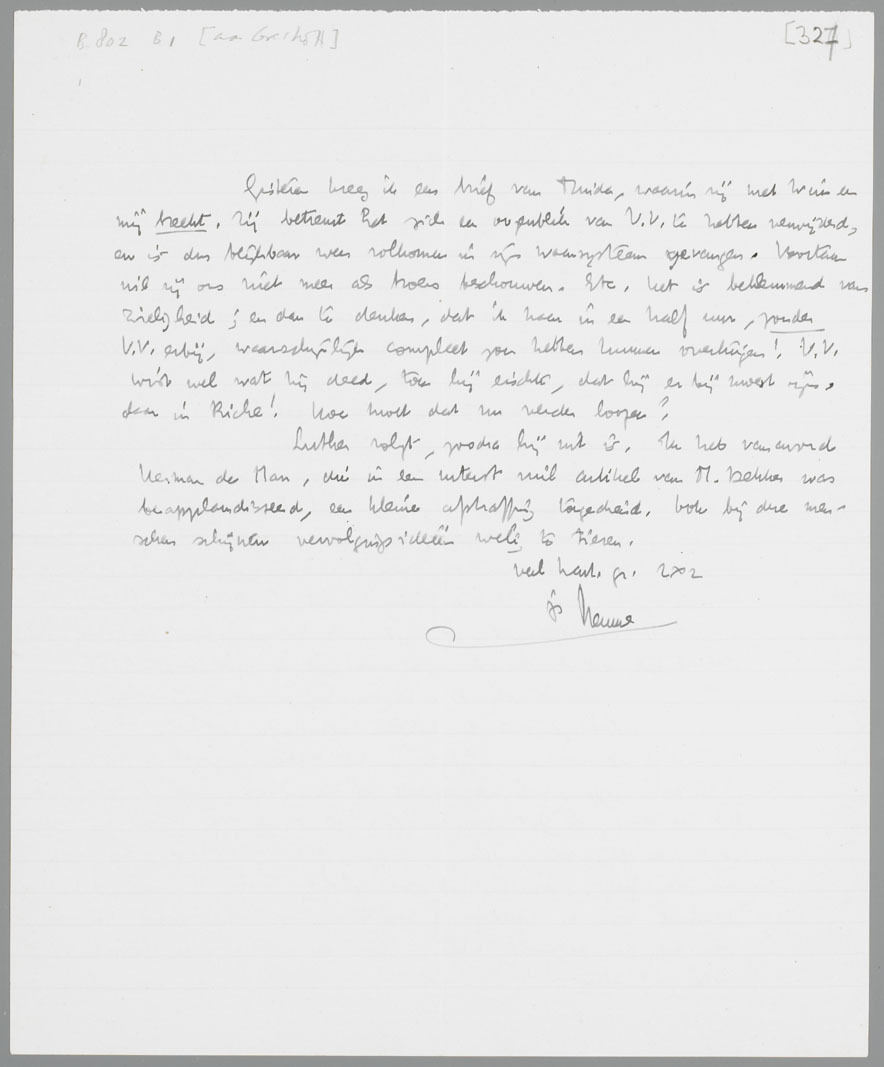 B 802 B 1 [aan Greshoff] [327]
Gisteren kreeg ik een brief van Truida, waarin zij met Wim en
mij breekt. Zij betreurt het zich een oogenblik van V.V. te hebben verwijderd,
en is dus blijkbaar weer volkomen in zijn waansysteem gevangen. Voortaan
wil zij ons niet meer als broers beschouwen. Etc. Het is beklemmend van
zieligheid; en dan te denken, dat ik haar in een half uur, zonder
V.V. erbij, waarschijnlijk compleet zou hebben kunnen overtuigen! V.V.
wist wel wat hij deed, toen hij eischte, dat hij er bij moest zijn,
daar in Riche! Hoe moet dat nu verder loopen?
Luther volgt, zoodra hij uit is. Ik heb vanavond
Herman de Man, die in een uiterst vuil artikel van M. Dekker was
beapplaudisseerd, een kleine afstraffing toegediend. Ook bij deze men-
schen schijnen vervolgingsideeën welig te tieren.
veel hart. gr. 2x2
je Menno